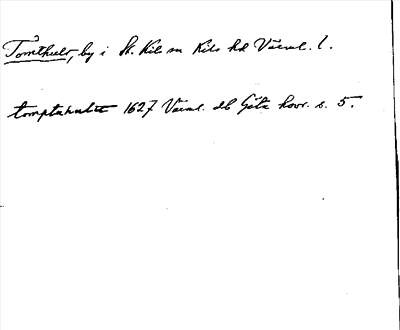 Tomthult, by i St. Kil sn Kils hd Värml. l.
tomptahulta 1627 Värml. db Göta hovr. s. 5.